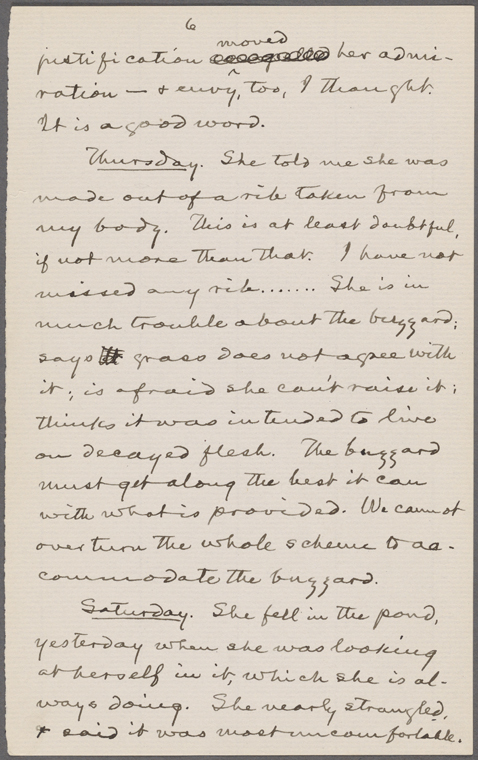 6
moved
justification her admi-
ration — & envy, too, I thought.
It is a good word.
Thursday. She told me she was
made out of a rib taken from
my body. This is at least doubtful,
if not more than that. I have not
missed any rib....... She is in
much trouble about the buzzard;
says grass does not agree with
it; is afraid she can't raise it;
thinks it was intended to live
on decayed flesh. The buzzard
must get along the best it can
with what is provided. We cannot
overturn the whole scheme to ac-
commodate the buzzard.
Saturday. She fell in the pond,
yesterday when she was looking
at herself in it, which she is al-
ways doing. She nearly strangled,
& said it was most uncomfortable.